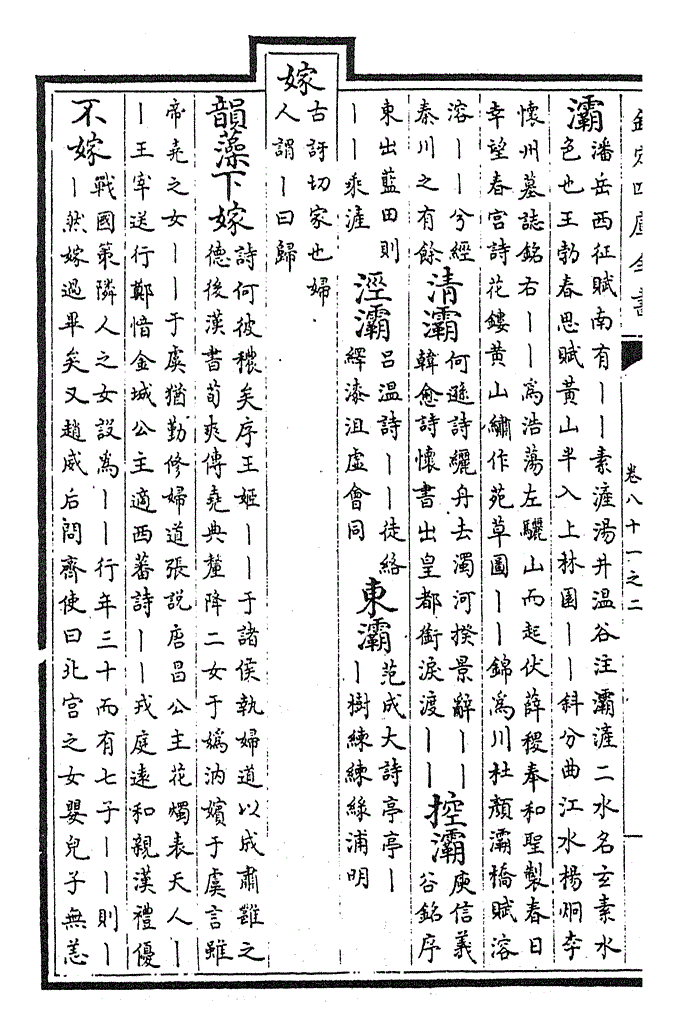 欽定四庫全書
卷八十一之二
灞
潘岳西征賦南有丨丨素滻湯井温谷注灞滻二水名玄素水
色也王勃春思賦黃山半入上林園丨丨斜分曲江水楊炯李
懷州墓誌銘右丨丨爲浩蕩左驪山而起伏薛稷奉和聖製春日
幸望春宮詩花鏤黃山繡作苑草圖丨丨錦爲川杜頠灞橋賦溶
溶丨丨兮經
秦川之有餘
清灞
何遜詩纚舟去濁河揆景辭丨丨
韓愈詩懷書出皇都銜淚渡丨丨
控灞
庾信義
谷銘序
東出藍田則
丨丨乘滻
涇灞
呂温詩丨丨徒絡
繹漆沮虛會同
東灞
范成大詩亭亭丨
丨樹練練緑浦明
嫁
古訝切家也婦
人謂丨曰歸
韻藻下嫁
詩何彼穠矣序王姬丨丨于諸侯執婦道以成肅雝之
德後漢書荀爽傳堯典釐降二女于嬀汭嬪于虞言雖
帝堯之女丨丨于虞猶勤修婦道張説唐昌公主花燭表天人丨
丨王宰送行鄭愔金城公主適西蕃詩丨丨戎庭遠和親漢禮優
不嫁
戰國策隣人之女設爲丨丨行年三十而有七子丨丨則丨
丨然嫁過畢矣又趙威后問齊使曰北宮之女嬰兒子無恙